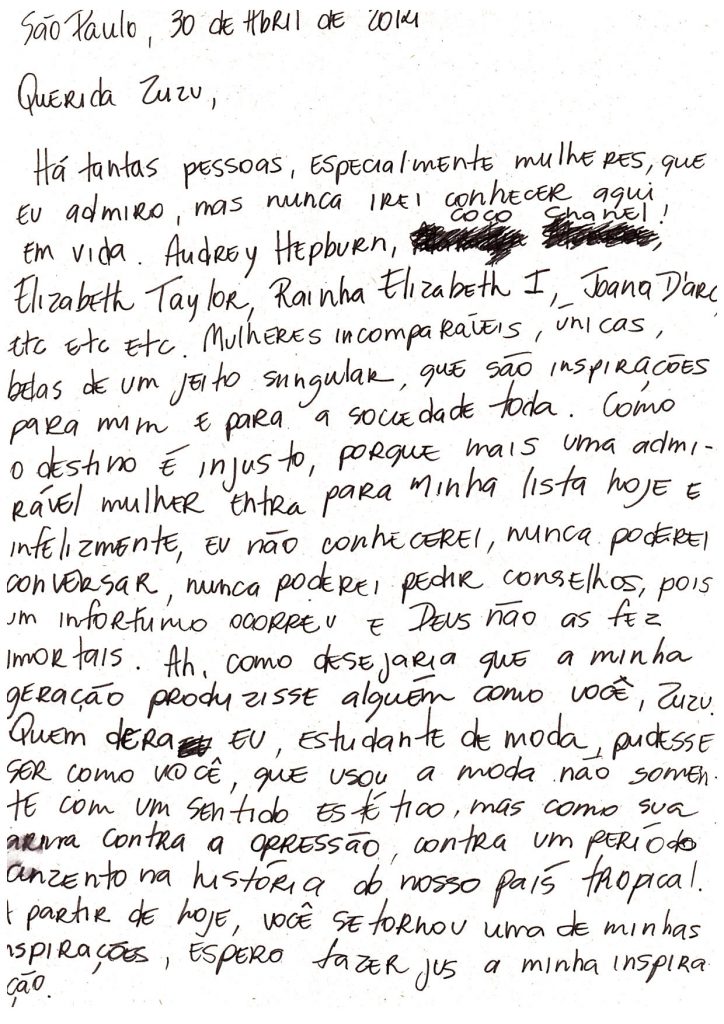 São Paulo, 30 de Abril de 2014
Querida Zuzu,
Há tantas pessoas, especialmente mulheres, que
eu admiro, mas nunca irei conhecer aqui
em vida. Audrey Hepburn, Coco Chanel!,
Elizabeth Taylor, Rainha Elizabeth I, Joana D'arc,
etc etc etc. Mulheres incomparáveis, únicas,
belas de um jeito sungular, que são inspirações
para mim e para a sociedade toda. Como
o destino é injusto, porque mais uma admi-
rável mulher entra para minha lista hoje e
infelizmente, eu não conhecerei, nunca poderei
conversar, nunca poderei pedir conselhos, pois
um infortunio ocorreu e Deus não as fez
imortais. Ah, como desejaria que a minha
geração produzisse alguém como você, Zuzu.
Quem dera eu, estudante de moda, pudesse
ser como você, que usou a moda não somen-
te com um sentido estético, mas como sua
arma contra a opressão, contra um período
cinzento na história do nosso país tropical.
A partir de hoje, você se tornou uma de minhas
inspirações, espero fazer jus a minha inspira
ção.